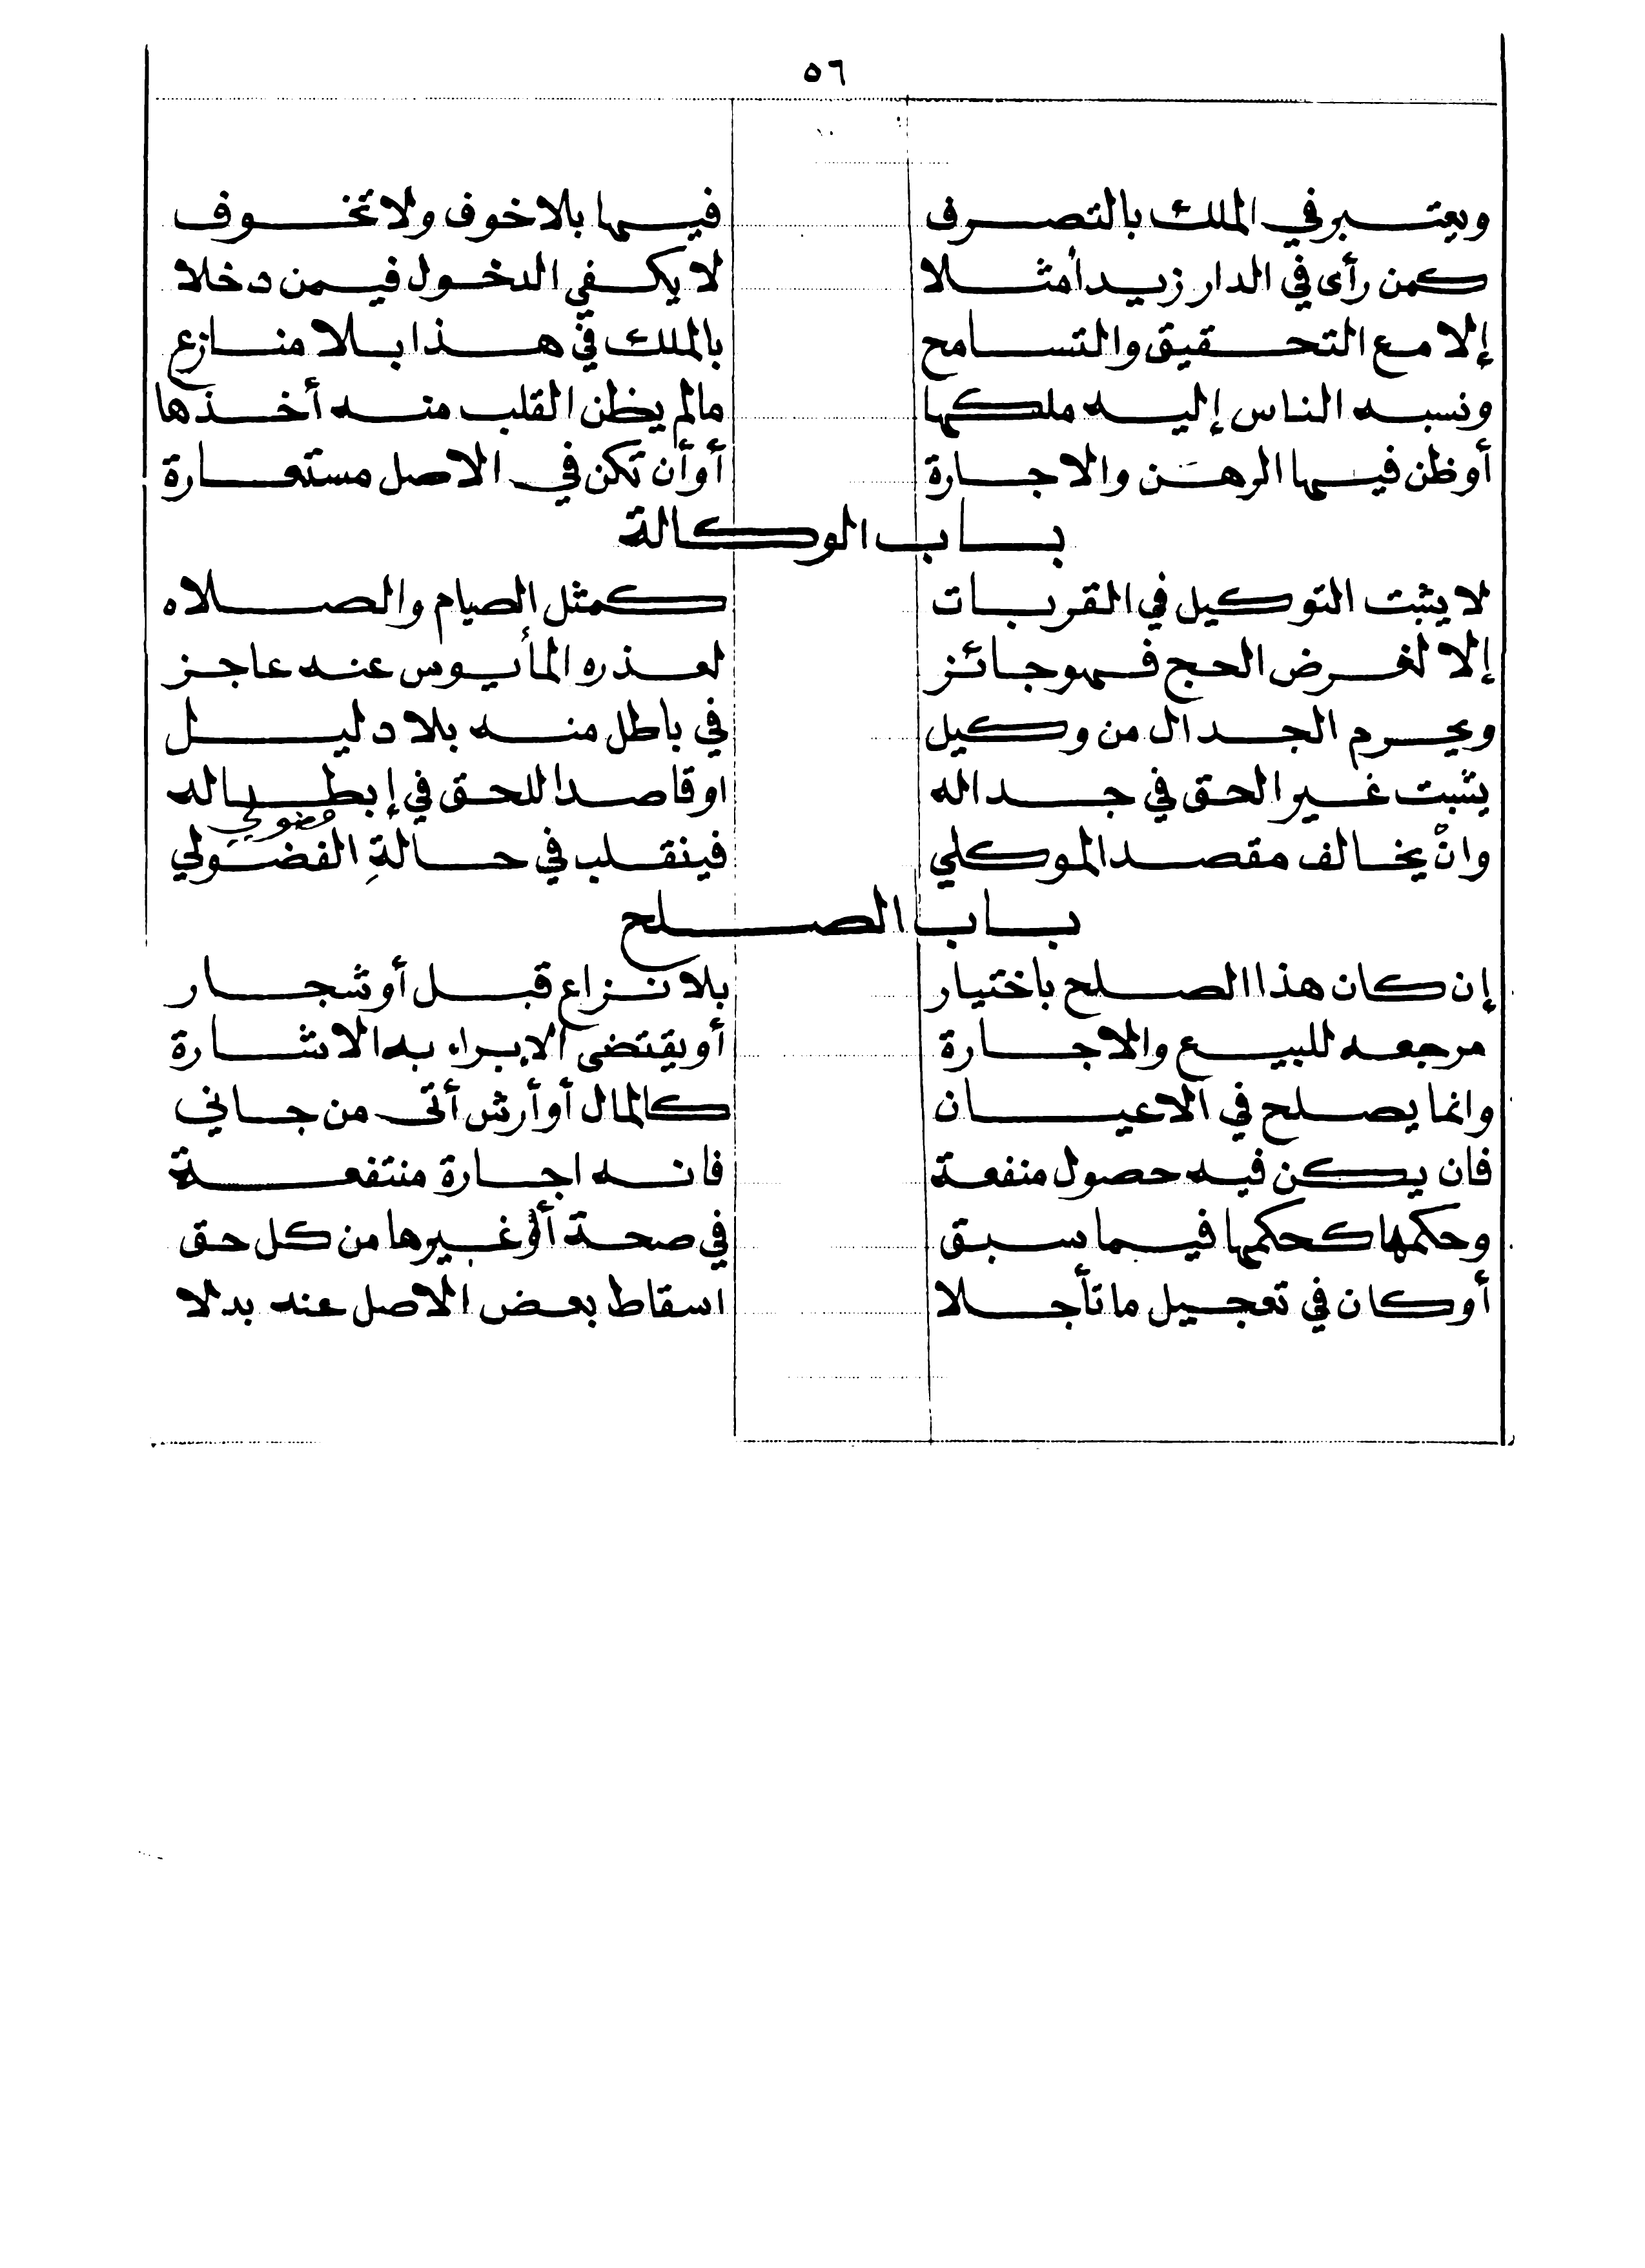 ٥٦
ويعتبر في الملك بالتصرف فيها بلا خوف ولا تخوف
كمن رأى في الدار زيداً مثلا لا يكفي الدخول فيمن دخلا
إلا مع التحقيق والتسامح بالملك في هذا بلا منازع
ونسبه الناس إليه ملكها مالم يظن القلب منه أخذها
أوظن فيها الرهن والاجارة أوأن تكن في الاصل مستعارة
باب الوكالة
لا يثبت التوكيل في القربات كمثل الصيام والصلاه
إلا لغرض الحج فهو جائز لعذره المأيوس عنه عاجز
ويحرم الجدال من وكيل في باطل منه بلا دليل
يثبت غير الحق في جداله او قاصدا للحق في إبطاله
وانّ يخالف مقصد الموكلي فينقلب في حالةِ الفضولي
فضولي
باب الصلح
إن كان هذا الصلح باختيار بلا نزاع قبل أو شجار
مرجعه للبيع والاجارة أو يقتضى الابراء به الاشارة
وانما يصلح في الاعيان كالمال أو أرش أتى من جاني
فان يكن فيه حصول منفعة فانه اجارة منتفعة
وحكمها كحكمها فيما سبق في صحة أو غيرها من كل حق
أو كان في تعجيل ما تأجلا اسقاط بعض الاصل عنه بدلا